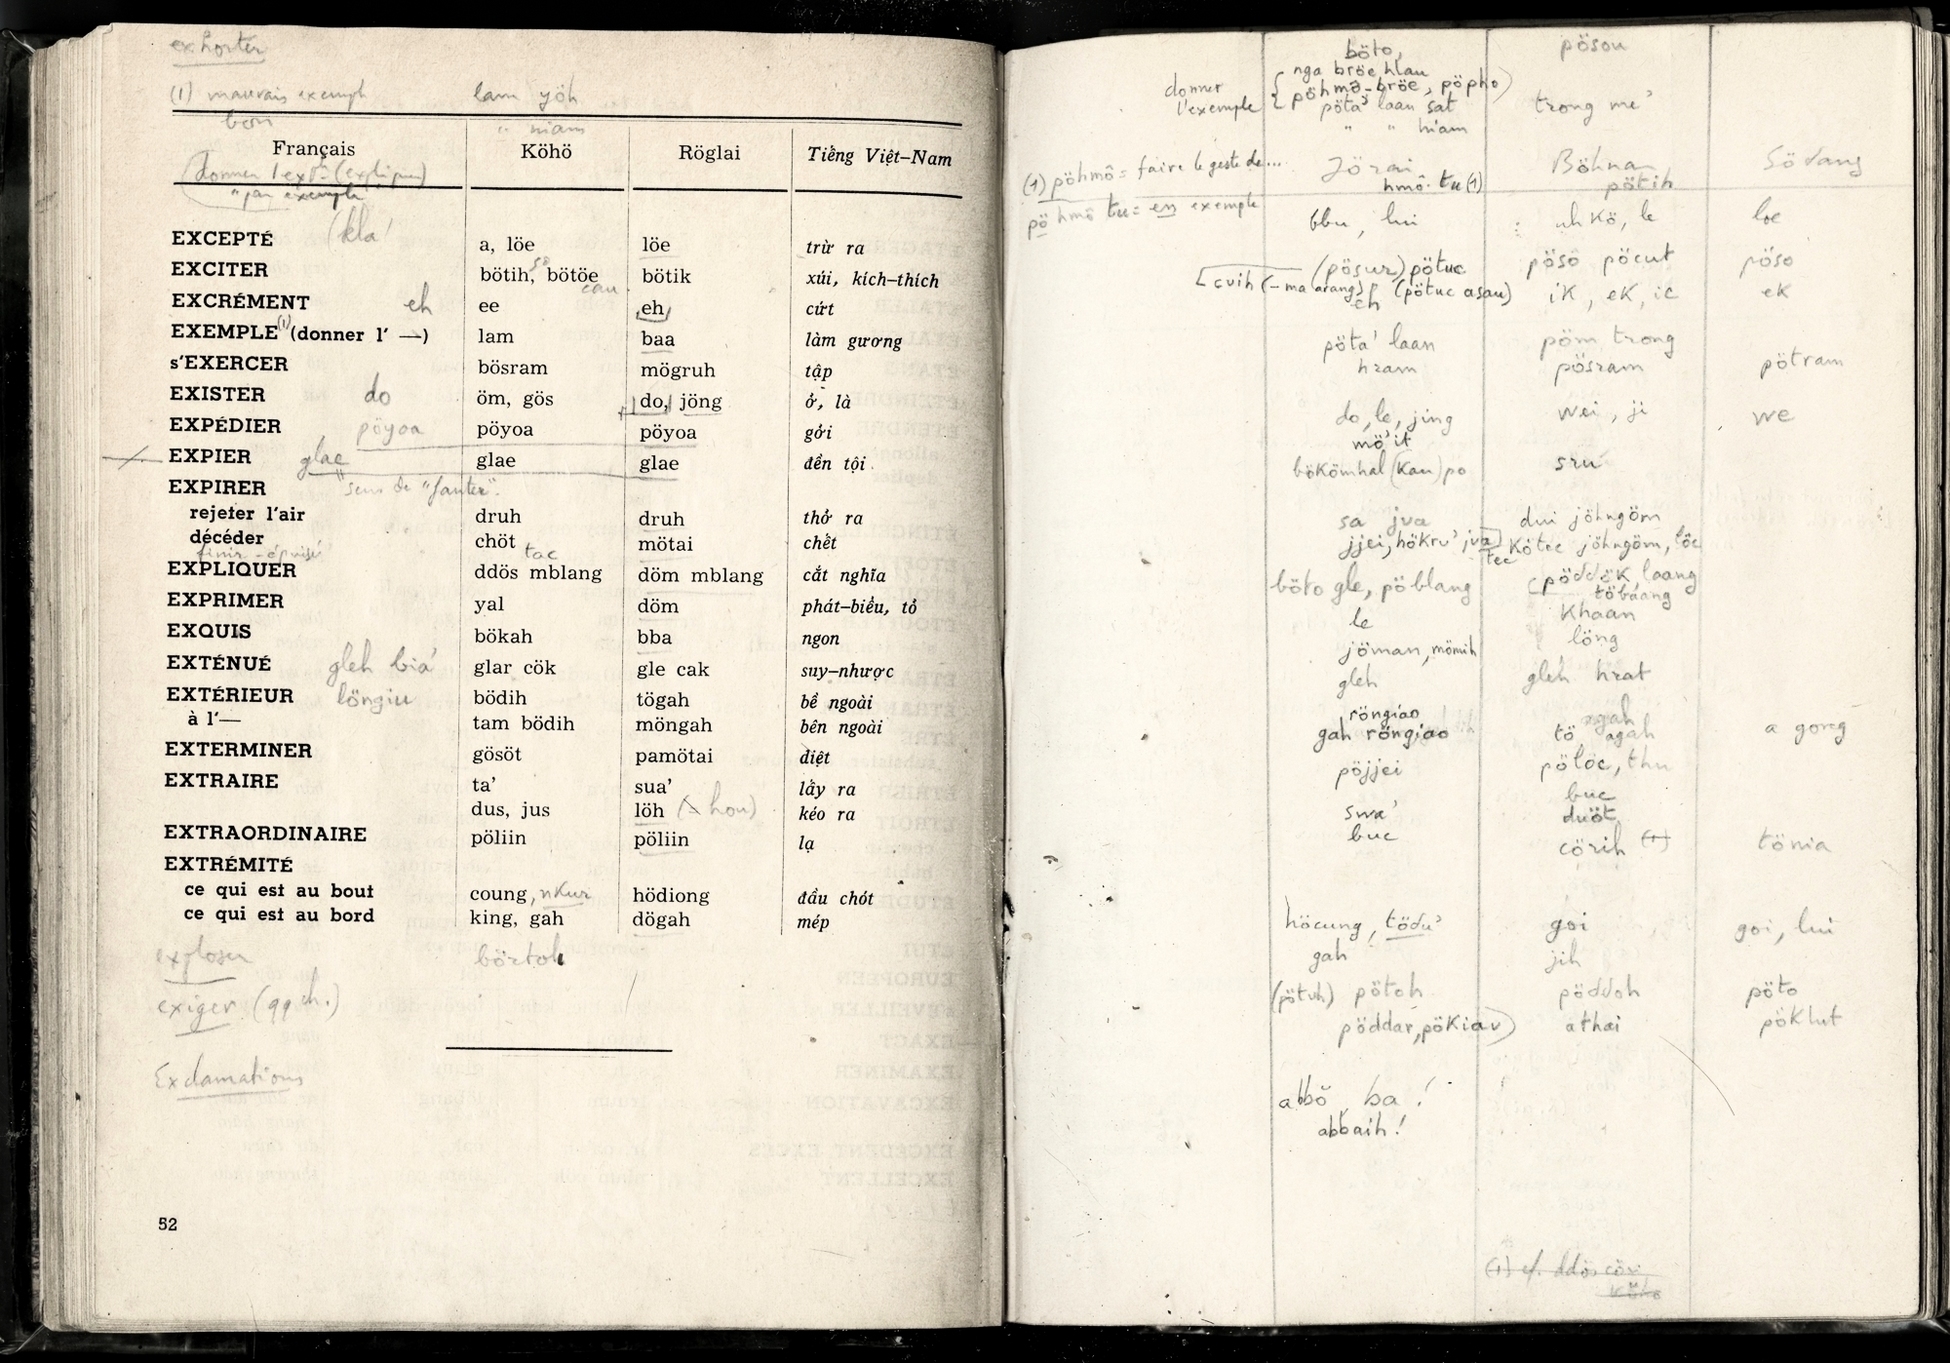 exhorter
(1) mauvais exemple lam yöh
bon " niam
Français Köhö Röglai Tiếng Việt–Nam
" par exemple
EXCEPTÉ (kla' a, löe löe trừ ra
EXCITER bötih, bötöe bötik xúi, kích–thích
EXCRÉMENT eh ee eh cứt
EXEMPLE (1) (donner l' —) lam baa làm gương
s'EXERCER bösram mögruh tập
EXISTER do öm, gös do, jöng ở, là
EXPÉDIER pöyoa pöyoa pöyoa gởi
EXPIER glae glae glae đền tội
EXPIRER sens de "
rejeter l'air druh druh thở ra
décéder chöt mötai chết
tac
EXPLIQUER ddös mblang döm mblang cắt nghĩa
EXPRIMER yal döm phát–biểu, tỏ
EXQUIS bökah bba ngon
EXTÉNUÉ gleh bia' glar cök gle cak suy–nhược
EXTÉRIEUR löngiu bödih tögah bề ngoài
à l'— tam bödih möngah bên ngoài
EXTERMINER gösöt pamötai diệt
EXTRAIRE ta' sua' lấy ra
dus, jus löh kéo ra
EXTRAORDINAIRE pöliin pöliin lạ
EXTRÉMITÉ
ce qui est au bout coung, nkur hödiong đầu chót
ce qui est au bord king, gah dögah mép
exploser börtoh
exiger (qqch.)
Exclamations
52
böto, pösou
nga bröe hlau
donner l'exemple { pöhmô-bröe, pöpho
pöta' laan sat trong me'
" " hiam
(1) pöhmô = faire le geste de...
Jörai Böhnar Södang
hmô tu (1) pötih
pö hmô tu = en exemple
bbu, lui uh kö, le loe
(pösur) pötuc pösö pöcut pöso
cuih (– ma arang) (pötuc asau) ik, ek, ic ek
eh
pöta' laan pöm trong
hram pösram pötram
do, le, jing wei, ji we
mö'it
bökömhal (kau) po sru
sa jva dui jöhngöm
jjei, hökru', jva kötec jöhngöm, löc
tec
böto gle, pöblang pöddök, laang
töbaang
le khaan
jöman, mömih löng
gleh gleh hrat
röngiao ngah
gah röngiao tö agah a goreg
pöjjei pölöc, thu
buc
swa' duöt
buc cörih (1) tönia
höcung, tödu' goi goi, lui
gah jih
(pötuh) pötoh pöddoh pöto
pöddar, pökiav athai pöklut
abbö ba !
abbaih !